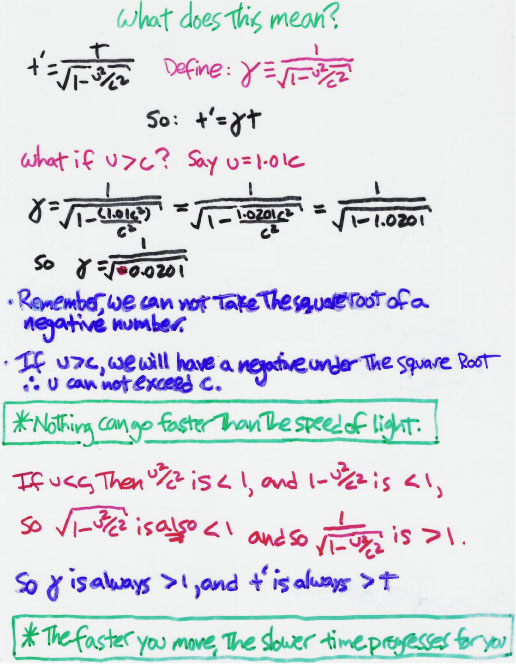 What does this mean?
t' = T/√(1-υ²/c²) Define: γ ≡ 1/√(1-υ²/c²)
So: t' = γT
What if υ>c? Say υ=1.01c
γ = 1/√(1-(1.01c²)/c²) = 1/√(1-1.0201c²/c²) = 1/√(1-1.0201)
So γ = 1/√(-0.0201)
• Remember, we can not Take The square root of a
negative number.
• If υ>c, we will have a negative under The square Root
∴ υ can not exceed c.
*Nothing can go faster Than The speed of light.
If υ<c, Then υ²/c² is <1, and 1-υ²/c² is <1,
So √(1-υ²/c²) is also <1 and so 1/√(1-υ²/c²) is >1.
So γ is always >1, and t' is always >T
*The faster you move, The slower time progresses for you